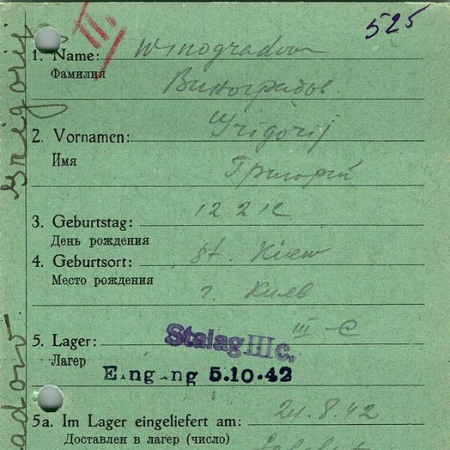 525
II.
1. Name: Winogradow
Фамилия
Виноградов.
2. Vornamen: Grigorij
Имя
Григорий
3. Geburtstag: 12 2 12
День рождения
4. Geburtsort: st. Kiew
Место рождения
г. Киев
5. Lager: Stalag III c. III-C
Лагер
Eingang 5.10.42
5a. Im Lager eingeliefert am: 24.8.42
Доставлен в лагер (число)
Grigorij